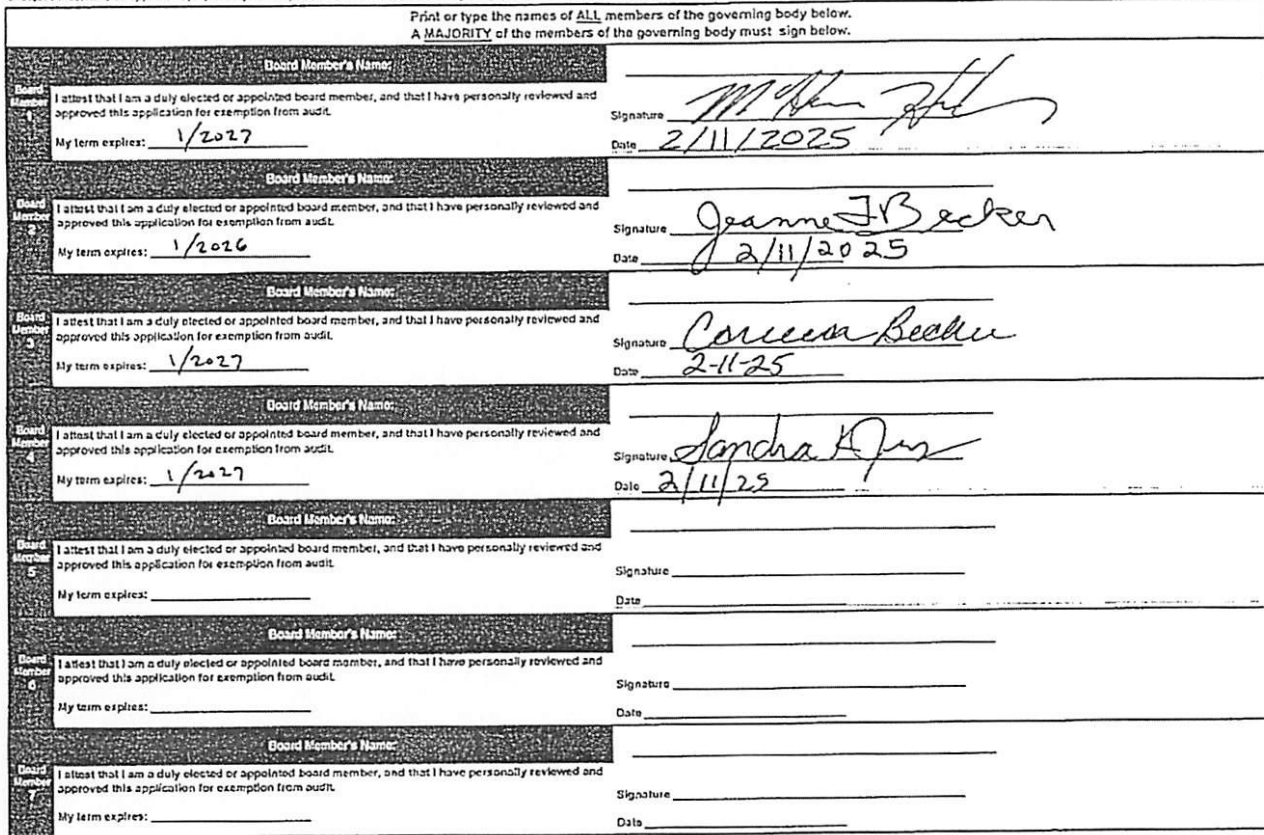 Print or type the names of ALL members of the governing body below.
A MAJORITY of the members of the governing body must sign below.
Board Member's Name:
Board Member 1
I attest that I am a duly elected or appointed board member, and that I have personally reviewed and
approved this application for exemption from audit.
My term expires: 1/2027
Signature
Date 2/11/2025
Board Member's Name:
Board Member 2
I attest that I am a duly elected or appointed board member, and that I have personally reviewed and
approved this application for exemption from audit.
My term expires: 1/2026
Signature Jeanne F Becker
Date 2/11/2025
Board Member's Name:
Board Member 3
I attest that I am a duly elected or appointed board member, and that I have personally reviewed and
approved this application for exemption from audit.
My term expires: 1/2027
Signature Becker
Date 2-11-25
Board Member's Name:
Board Member 4
I attest that I am a duly elected or appointed board member, and that I have personally reviewed and
approved this application for exemption from audit.
My term expires: 1/2027
Signature Sandra K
Date 2/11/25
Board Member's Name:
Board Member 5
I attest that I am a duly elected or appointed board member, and that I have personally reviewed and
approved this application for exemption from audit.
My term expires:
Signature
Date
Board Member's Name:
Board Member 6
I attest that I am a duly elected or appointed board member, and that I have personally reviewed and
approved this application for exemption from audit.
My term expires:
Signature
Date
Board Member's Name:
Board Member 7
I attest that I am a duly elected or appointed board member, and that I have personally reviewed and
approved this application for exemption from audit.
My term expires:
Signature
Date